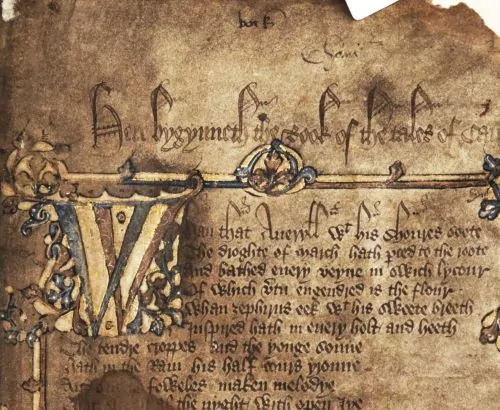 Here bygynneth the Book of the tales of Ca
Whan that Aueryll wt his shoures soote
The droghte of March hath pced to the roote
And bathed euery veyne in swich lycour
Of which vtu engendred is the flour
Whan zephirus eek wt his sweete breeth
Inspired hath in euery holt and heeth
The tendre croppes and the yonge sonne
Hath in the Ram his half cours yronne
And foweles maken melodye
the nyght with open Iye